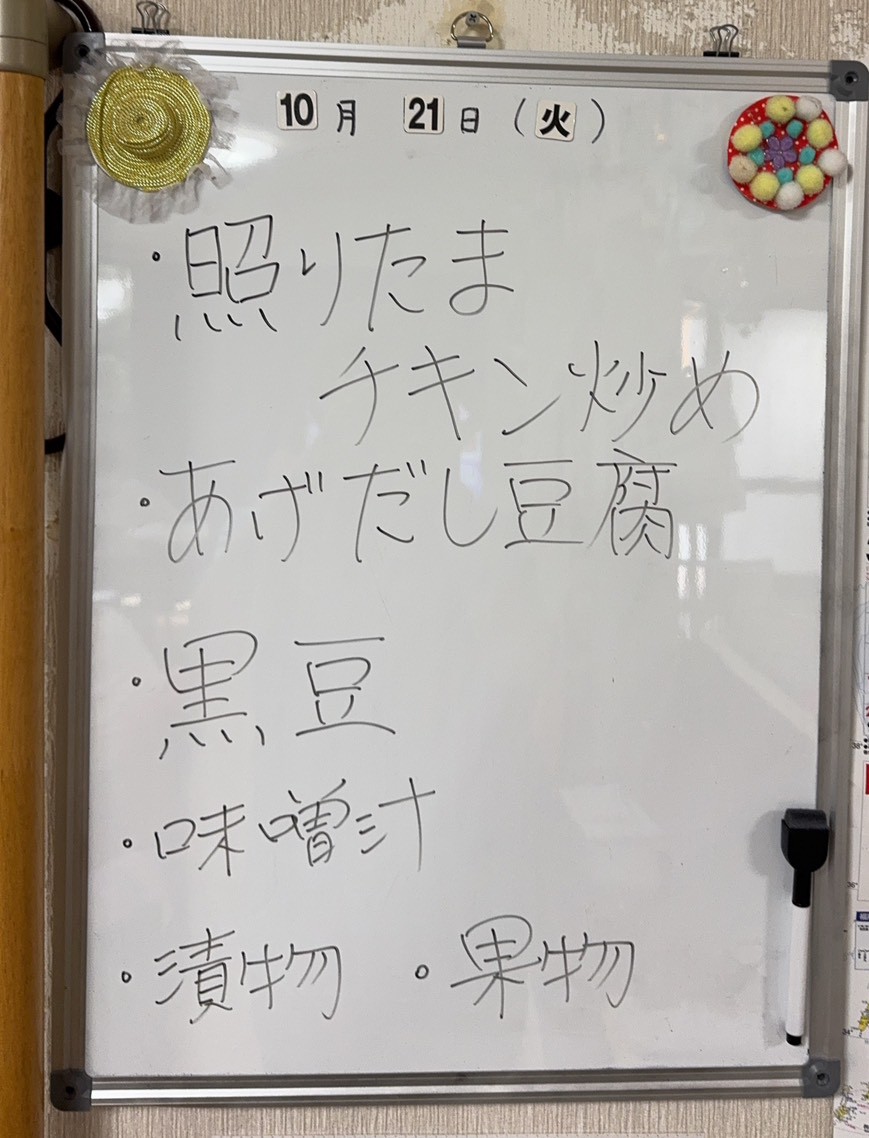 10月 21日(火)
・照りたま
チキン炒め
・あげだし豆腐
・黒豆
・味噌汁
・漬物 ・果物